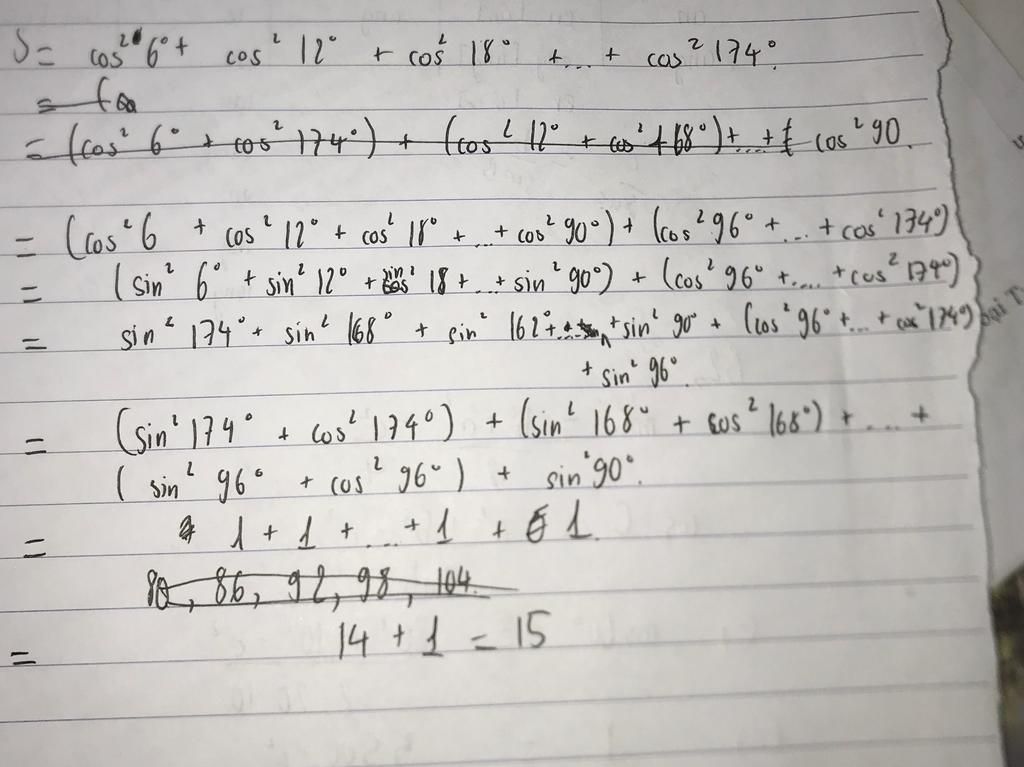 S = cos² 6° + cos² 12° + cos² 18° + ... + cos² 174°.
=
= (cos² 6° + cos² 174°) + (cos² 12° + cos² 168°) + ... + cos² 90.
= (cos² 6 + cos² 12° + cos² 18° + ... + cos² 90°) + (cos² 96° + ... + cos² 174°)
= (sin² 6° + sin² 12° + sin² 18 + ... + sin² 90°) + (cos² 96° + .... + cos² 174°)
= sin² 174° + sin² 168° + sin² 162° + ... + sin² 90° + (cos² 96° + ... + cos² 174°)
+ sin² 96°.
= (sin² 174° + cos² 174°) + (sin² 168° + cos² 168°) + ... +
(sin² 96° + cos² 96°) + sin² 90°.
= 1 + 1 + ... + 1 + 1.
80, 86, 92, 98, 104.
= 14 + 1 = 15